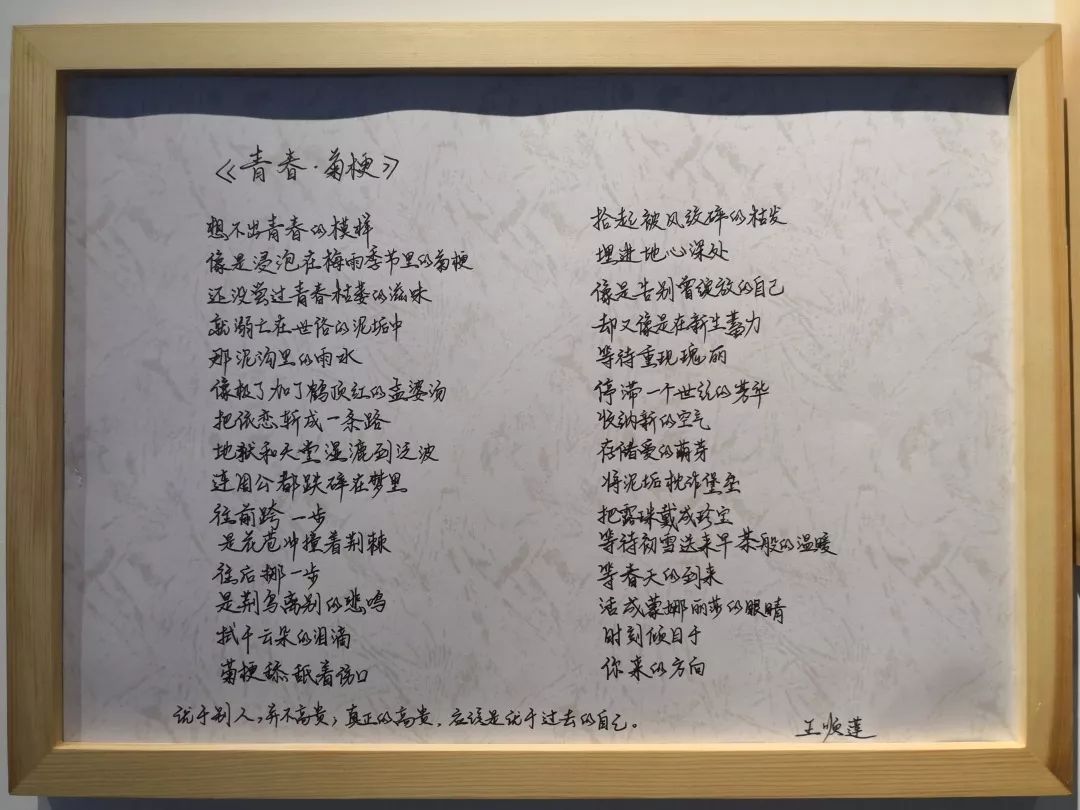 《青春·菊梗》
想不出青春的模样
像是浸泡在梅雨季节里的菊梗
还没尝过青春枯萎的滋味
就溺亡在世俗的泥垢中
那泥沟里的雨水
像极了加了鹤顶红的孟婆汤
把依恋斩成一条路
地狱和天堂湿漉到泛波
连周公都跌碎在梦里
往前跨一步
是花苞冲撞着荆棘
往后挪一步
是荆鸟离别的悲鸣
拭干云朵的泪滴
菊梗舔舐着伤口
拾起被风绞碎的枯发
埋进地心深处
像是告别曾绽放的自己
却又像是在新生蓄力
等待重现瑰丽
停滞一个世纪的芳华
收纳新的空气
存储爱的萌芽
将泥垢枕作堡垒
把露珠戴成珍宝
等待初雪送来早茶般的温暖
等春天的到来
活成蒙娜丽莎的眼睛
时刻倾目于
你来的方向
优于别人,并不高贵,真正的高贵,应该是优于过去的自己。
王顺莲